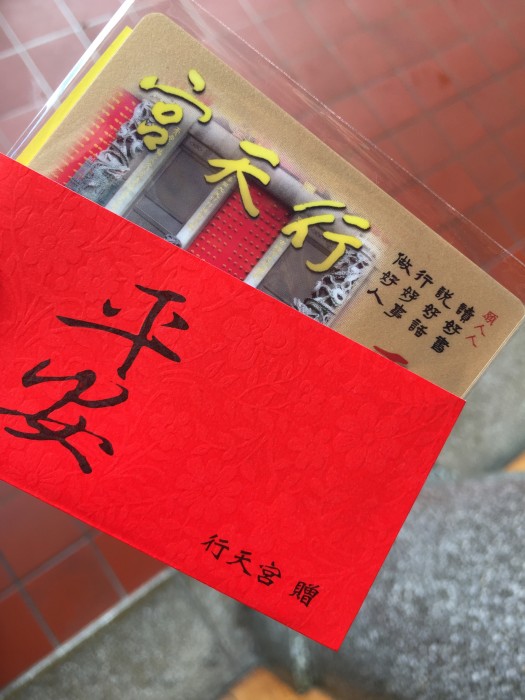 行天宮
願人人
讀好書
說好話
行好事
做好人
平安
行天宮 贈